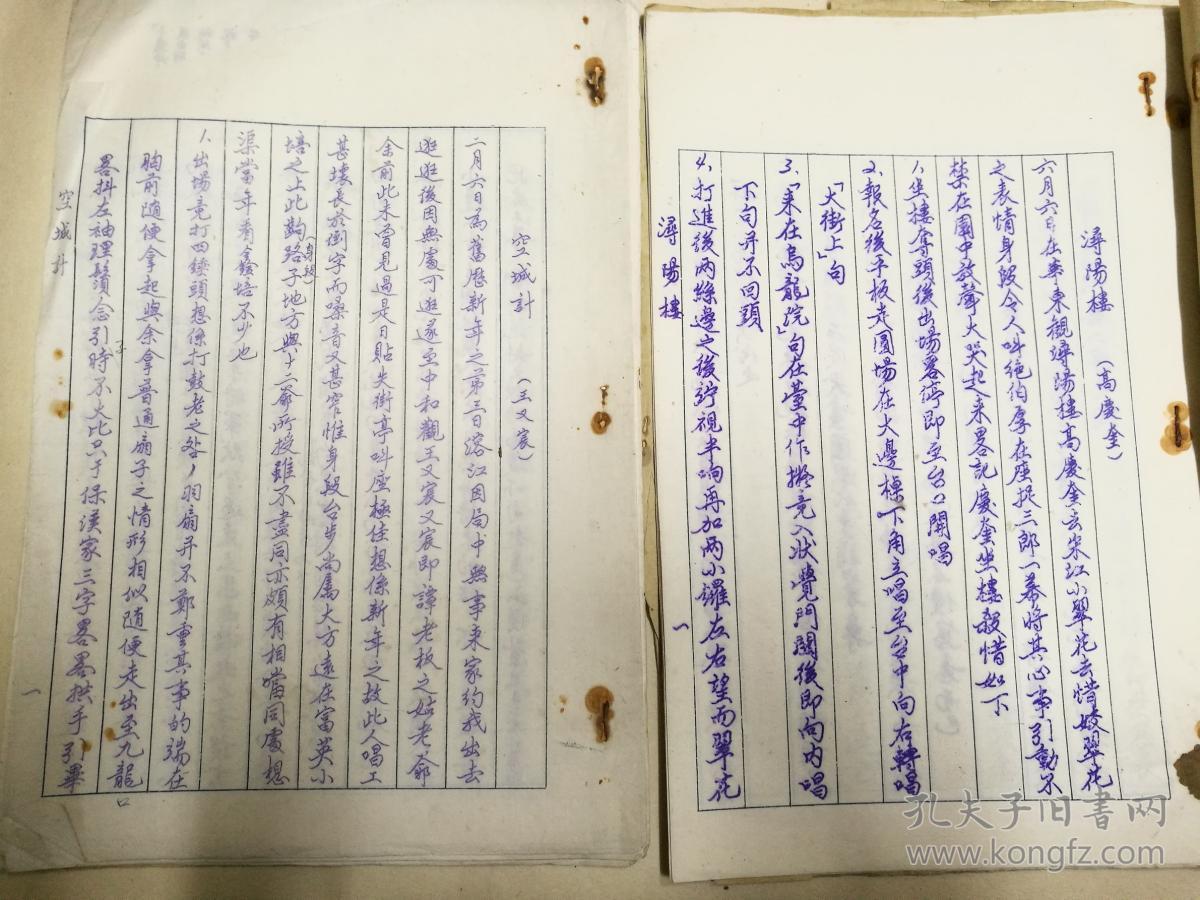 潯陽樓 （高慶奎）
六月六日在華東觀潯陽樓高慶奎去宋江小翠花去惜姣翠花
之表情身段令人叫絶伯厚在座捉三郎一幕將其心事引動不
禁在園中放聲大哭起來畧記慶奎坐樓殺惜如下
1、坐樓奪頭後出場畧停即至台口開唱
2、報名後平板走圓場在大邊檯下角立唱至台中向右轉唱
「大街上」句
3、「來在烏龍院」句在堂中作擬竟入狀覺門關後即向內唱
下句并不回頭
4、打進後兩絲邊之後竚視半响再加兩小鑼左右望而翠花
潯陽樓
一
空城計 （王又宸）
二月六日為舊歷新年之第三日溶江因局中無事來家約我出去
逛逛後因無處可逛遂至中和觀王又宸又宸即譚老板之姑老爺
余前此未曾見過是日貼失街亭叫座極佳想係新年之故此人唱工
甚壞長於倒字而嗓音又甚窄惟身段台步尚屬大方遠在富英小
培之上此齣路子（身段）地方與十二爺所授雖不盡同亦頗有相當同處想
渠當年看鑫培不少也
1、出場竟打四錘頭想係打鼓老之咎羽扇并不鄭重其事的端在
胸前隨便拿起與余拿普通扇子之情形相似隨便走出至九龍口
畧抖左袖理鬚念引子時不火比只于保漢家三字畧畧拱手引畢
空城計
一
孔夫子旧书网
www.kongfz.com